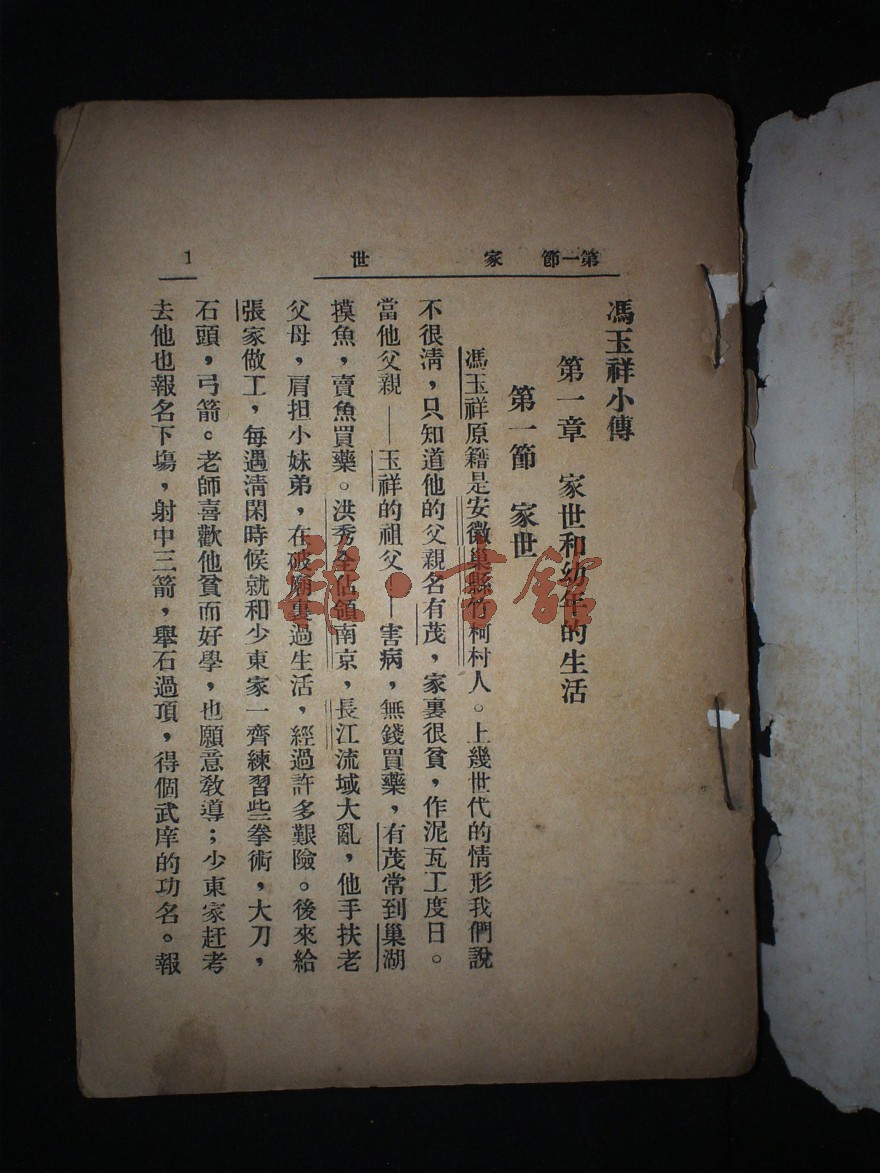 第一節 家 世 1
馮玉祥小傳
第一章 家世和幼年的生活
第一節 家世
馮玉祥原籍是安徽巢縣竹柯村人。上幾世代的情形我們說
不很淸，只知道他的父親名有茂，家裏很貧，作泥瓦工度日。
當他父親——玉祥的祖父—害病，無錢買藥，有茂常到巢湖
摸魚，賣魚買藥。洪秀全佔領南京，長江流域大亂，他手扶老
父母，肩担小妹弟，在破廟裏過生活，經過許多艱險。後來給
張家做工，每遇淸閑時候就和少東家一齊練習些拳術，大刀，
石頭，弓箭。老師喜歡他貧而好學，也願意敎導；少東家赶考
去他也報名下塲，射中三箭，舉石過頂，得個武庠的功名。報